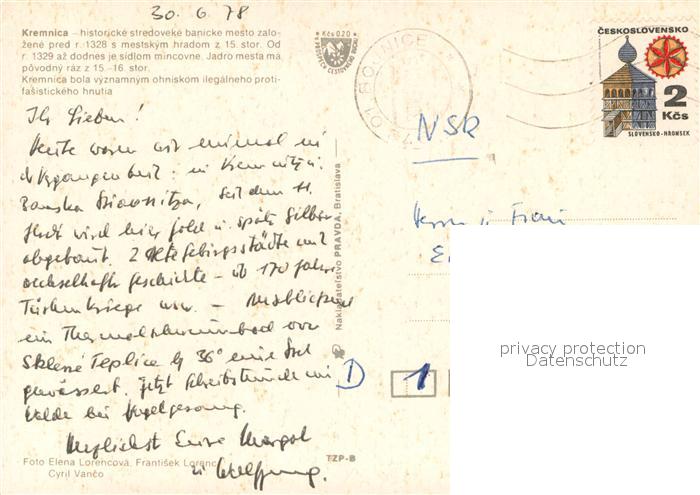 30. 6. 78
Kremnica – historické stredoveké banícke mesto zalo-
žené pred r. 1328 s mestským hradom z 15. stor. Od
r. 1329 až dodnes je sídlom mincovne. Jadro mesta má
pôvodný ráz z 15.–16. stor.
Kremnica bola významným ohniskom ilegálneho proti-
fašistického hnutia
Kčs 0,20
V PROSPECH CESTOVNÉHO RUCHU
ČESKOSLOVENSKO
2
Kčs
SLOVENSKO-HRONSEK
Ihr Lieben!
Heute waren wir einmal in
d. Vergangenheit: in Kremnitz u.
Banska Stiavnitza, seit dem 11.
Jhdt wird hier Gold u. später Silber
abgebaut. 2 alte Gebirgsstädte mit
wechselhafter Geschichte – üb 170 Jahre
Türkenkriege usw. – Anschließend
ein Thermalschwimmbad von
Sklené Teplice 36° eine Std
gewässert. Jetzt Schreibstunde im
Walde bei Vogelgesang.
Herzlichst Eure Margot
u Wolfgang.
NSR
Herrn u Frau
D 1
Nakladateľstvo PRAVDA, Bratislava
Foto Elena Lorencová, František Lorenc
Cyril Vančo
TZP-B
privacy protection
Datenschutz